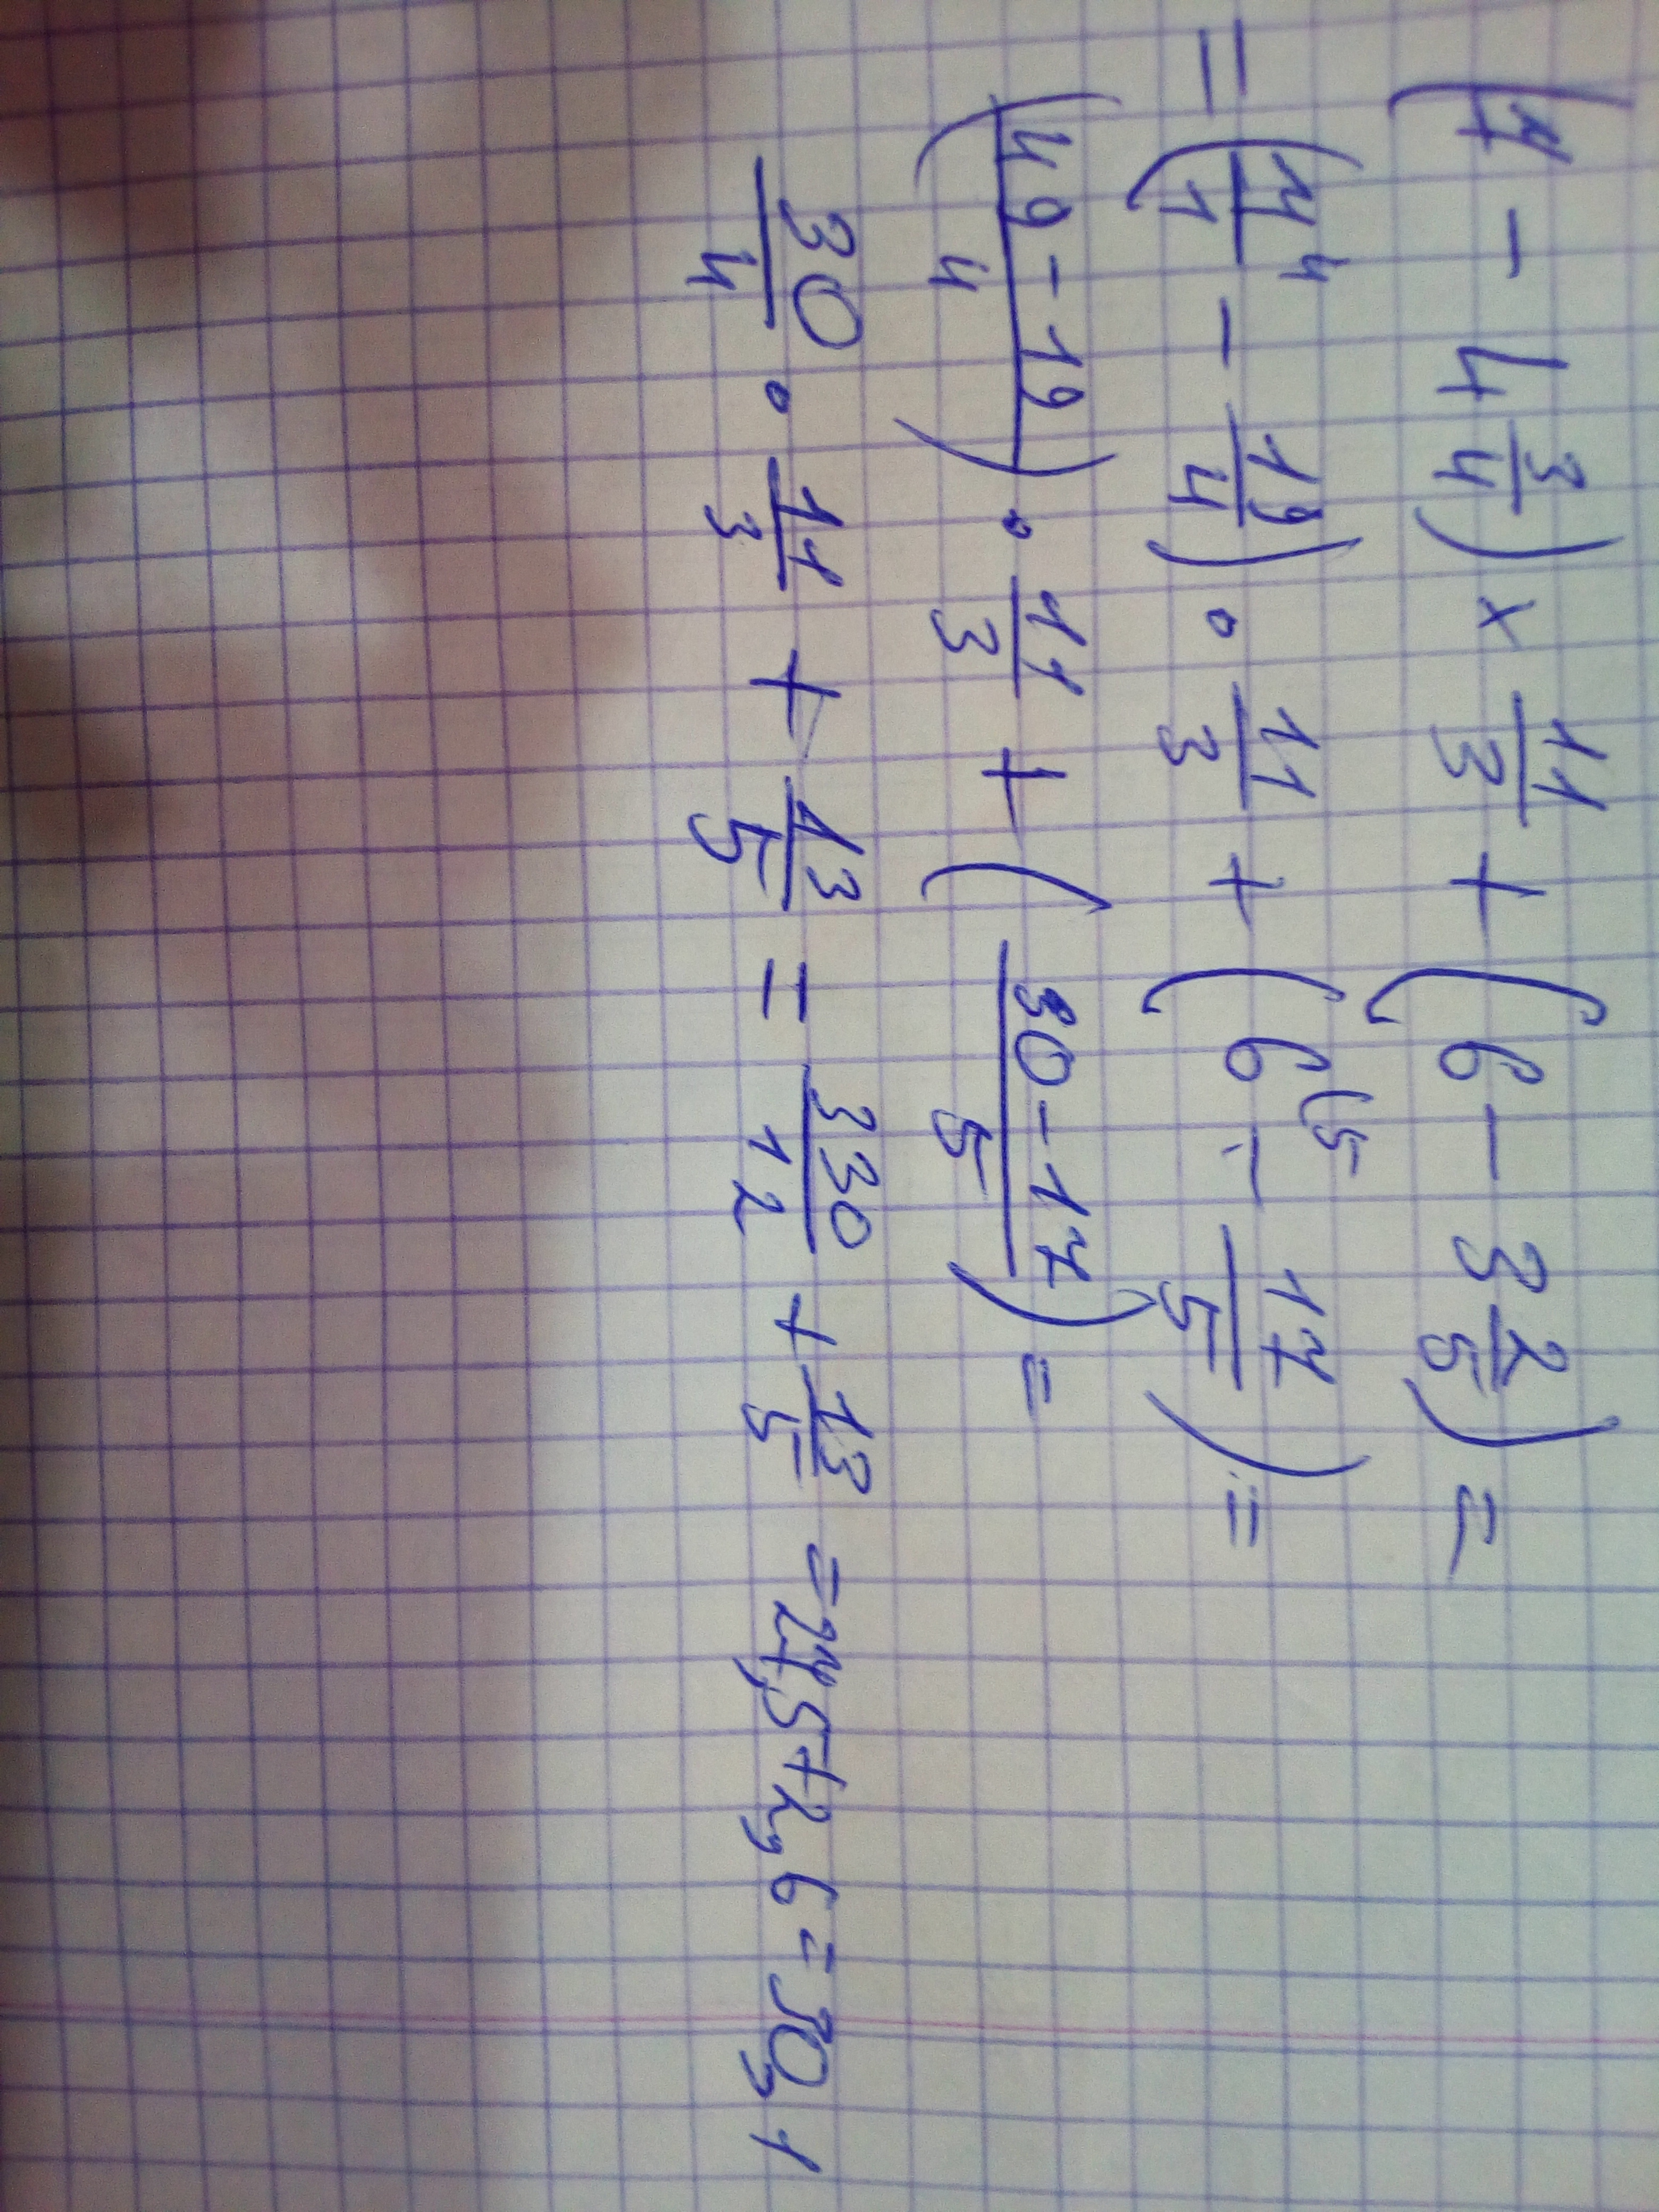 (7 - 4 3/4) x 11/3 + (6 - 3 2/5) =
= (7/1 4 - 19/4) · 11/3 + (6 (5 - 17/5) =
(49 - 19/4) · 11/3 + (30 - 17/5) =
30/4 · 11/3 + 13/5 = 330/12 + 13/5 = 27,5 + 2,6 = 30,1